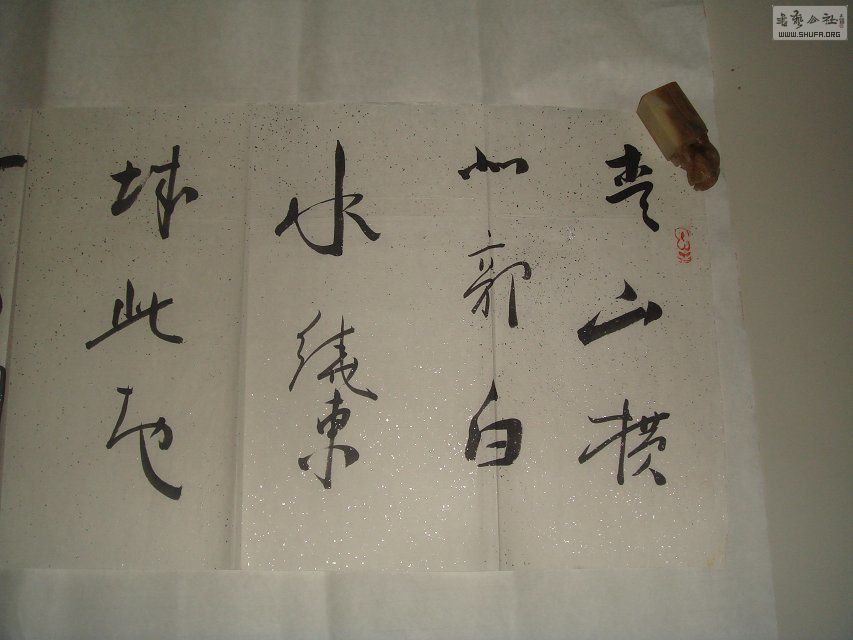 青山横
北郭白
水繞東
城此地
書藝公社
WWW.SHUFA.ORG